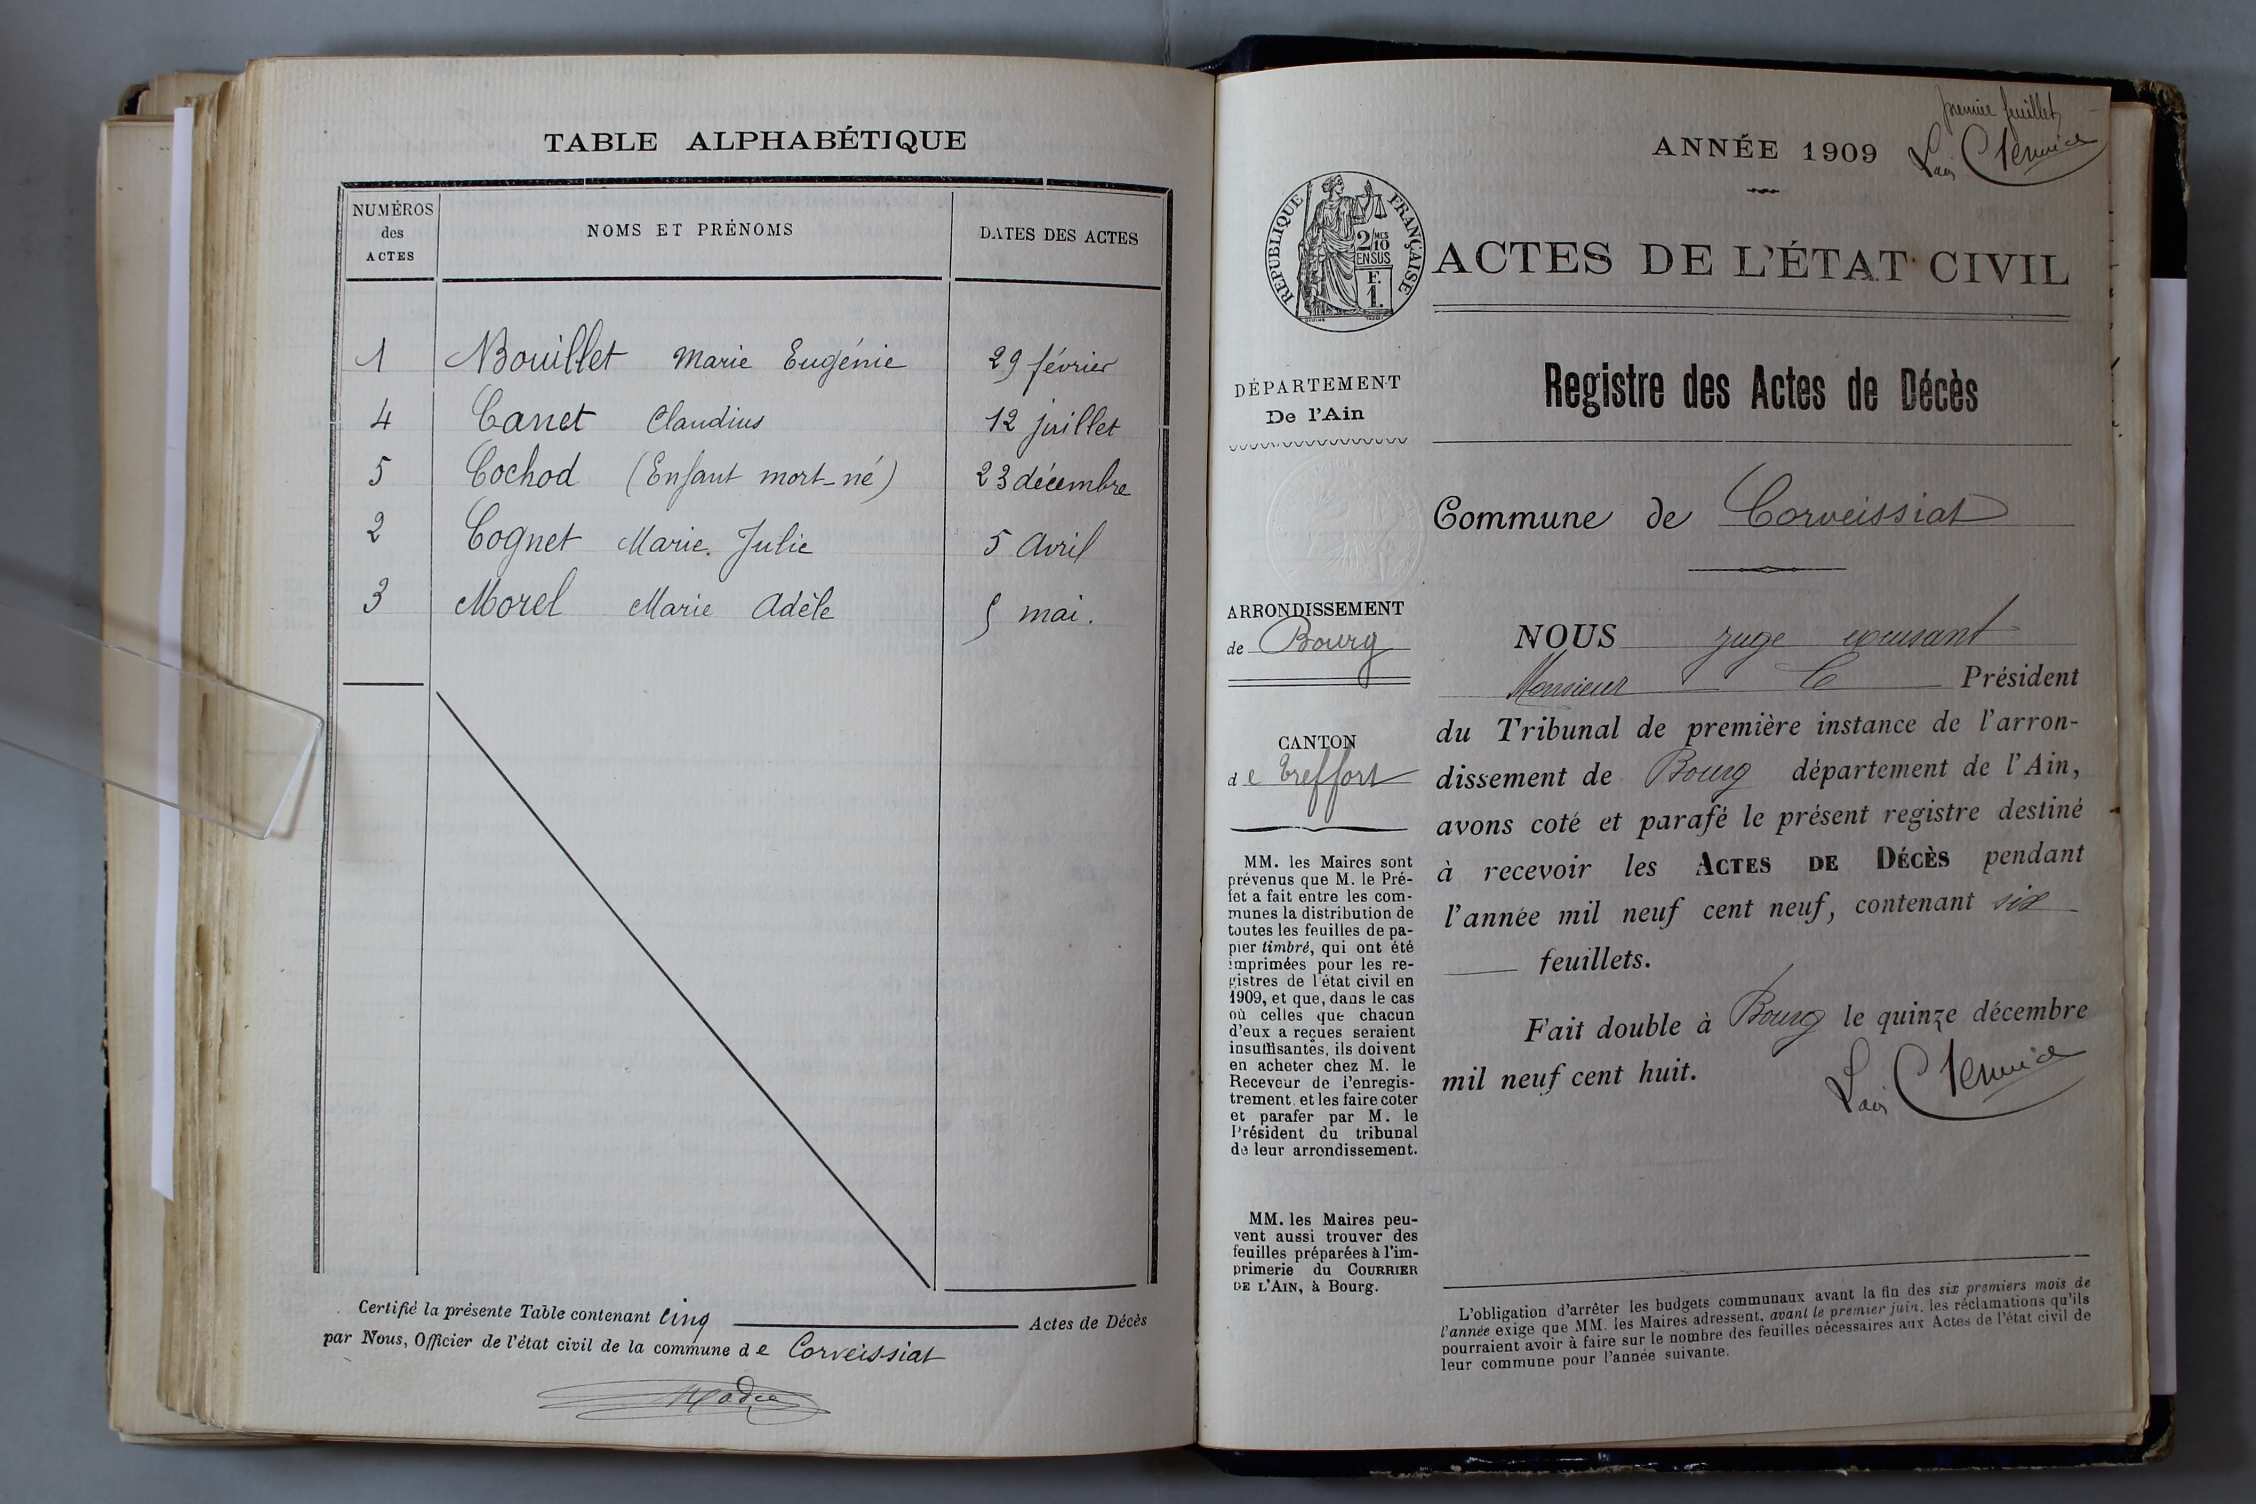 TABLE ALPHABÉTIQUE
NUMÉROS
des
ACTES
NOMS ET PRÉNOMS
DATES DES ACTES
1 Bouillet Marie Eugénie 29 février
4 Canet Claudius 12 juillet
5 Cochod (Enfant mort-né) 23 décembre
2 Cognet Marie Julie 5 Avril
3 Morel Marie Adèle 5 mai.
Certifié la présente Table contenant Cinq Actes de Décès
par Nous, Officier de l'état civil de la commune de Corveissiat
premier feuillet
ANNÉE 1909
RÉPUBLIQUE FRANÇAISE
2/10 MES
EN SUS
F.
1.
ACTES DE L'ÉTAT CIVIL
Registre des Actes de Décès
DÉPARTEMENT
De l'Ain
Commune de Corveissiat
ARRONDISSEMENT
de Bourg
CANTON
de Treffort
MM. les Maires sont
prévenus que M. le Pré-
fet a fait entre les com-
munes la distribution de
toutes les feuilles de pa-
pier timbré, qui ont été
imprimées pour les re-
gistres de l'état civil en
1909, et que, dans le cas
où celles que chacun
d'eux a reçues seraient
insuffisantes, ils doivent
en acheter chez M. le
Receveur de l'enregis-
trement et les faire coter
et parafer par M. le
Président du tribunal
de leur arrondissement.
MM. les Maires peu-
vent aussi trouver des
feuilles préparées à l'im-
primerie du COURRIER
DE L'AIN, à Bourg.
NOUS juge
Monsieur le Président
du Tribunal de première instance de l'arron-
dissement de Bourg département de l'Ain,
avons coté et parafé le présent registre destiné
à recevoir les ACTES DE DÉCÈS pendant
l'année mil neuf cent neuf, contenant six
feuillets.
Fait double à Bourg le quinze décembre
mil neuf cent huit.
L'obligation d'arrêter les budgets communaux avant la fin des six premiers mois de
l'année exige que MM. les Maires adressent, avant le premier juin, les réclamations qu'ils
pourraient avoir à faire sur le nombre des feuilles nécessaires aux Actes de l'état civil de
leur commune pour l'année suivante.